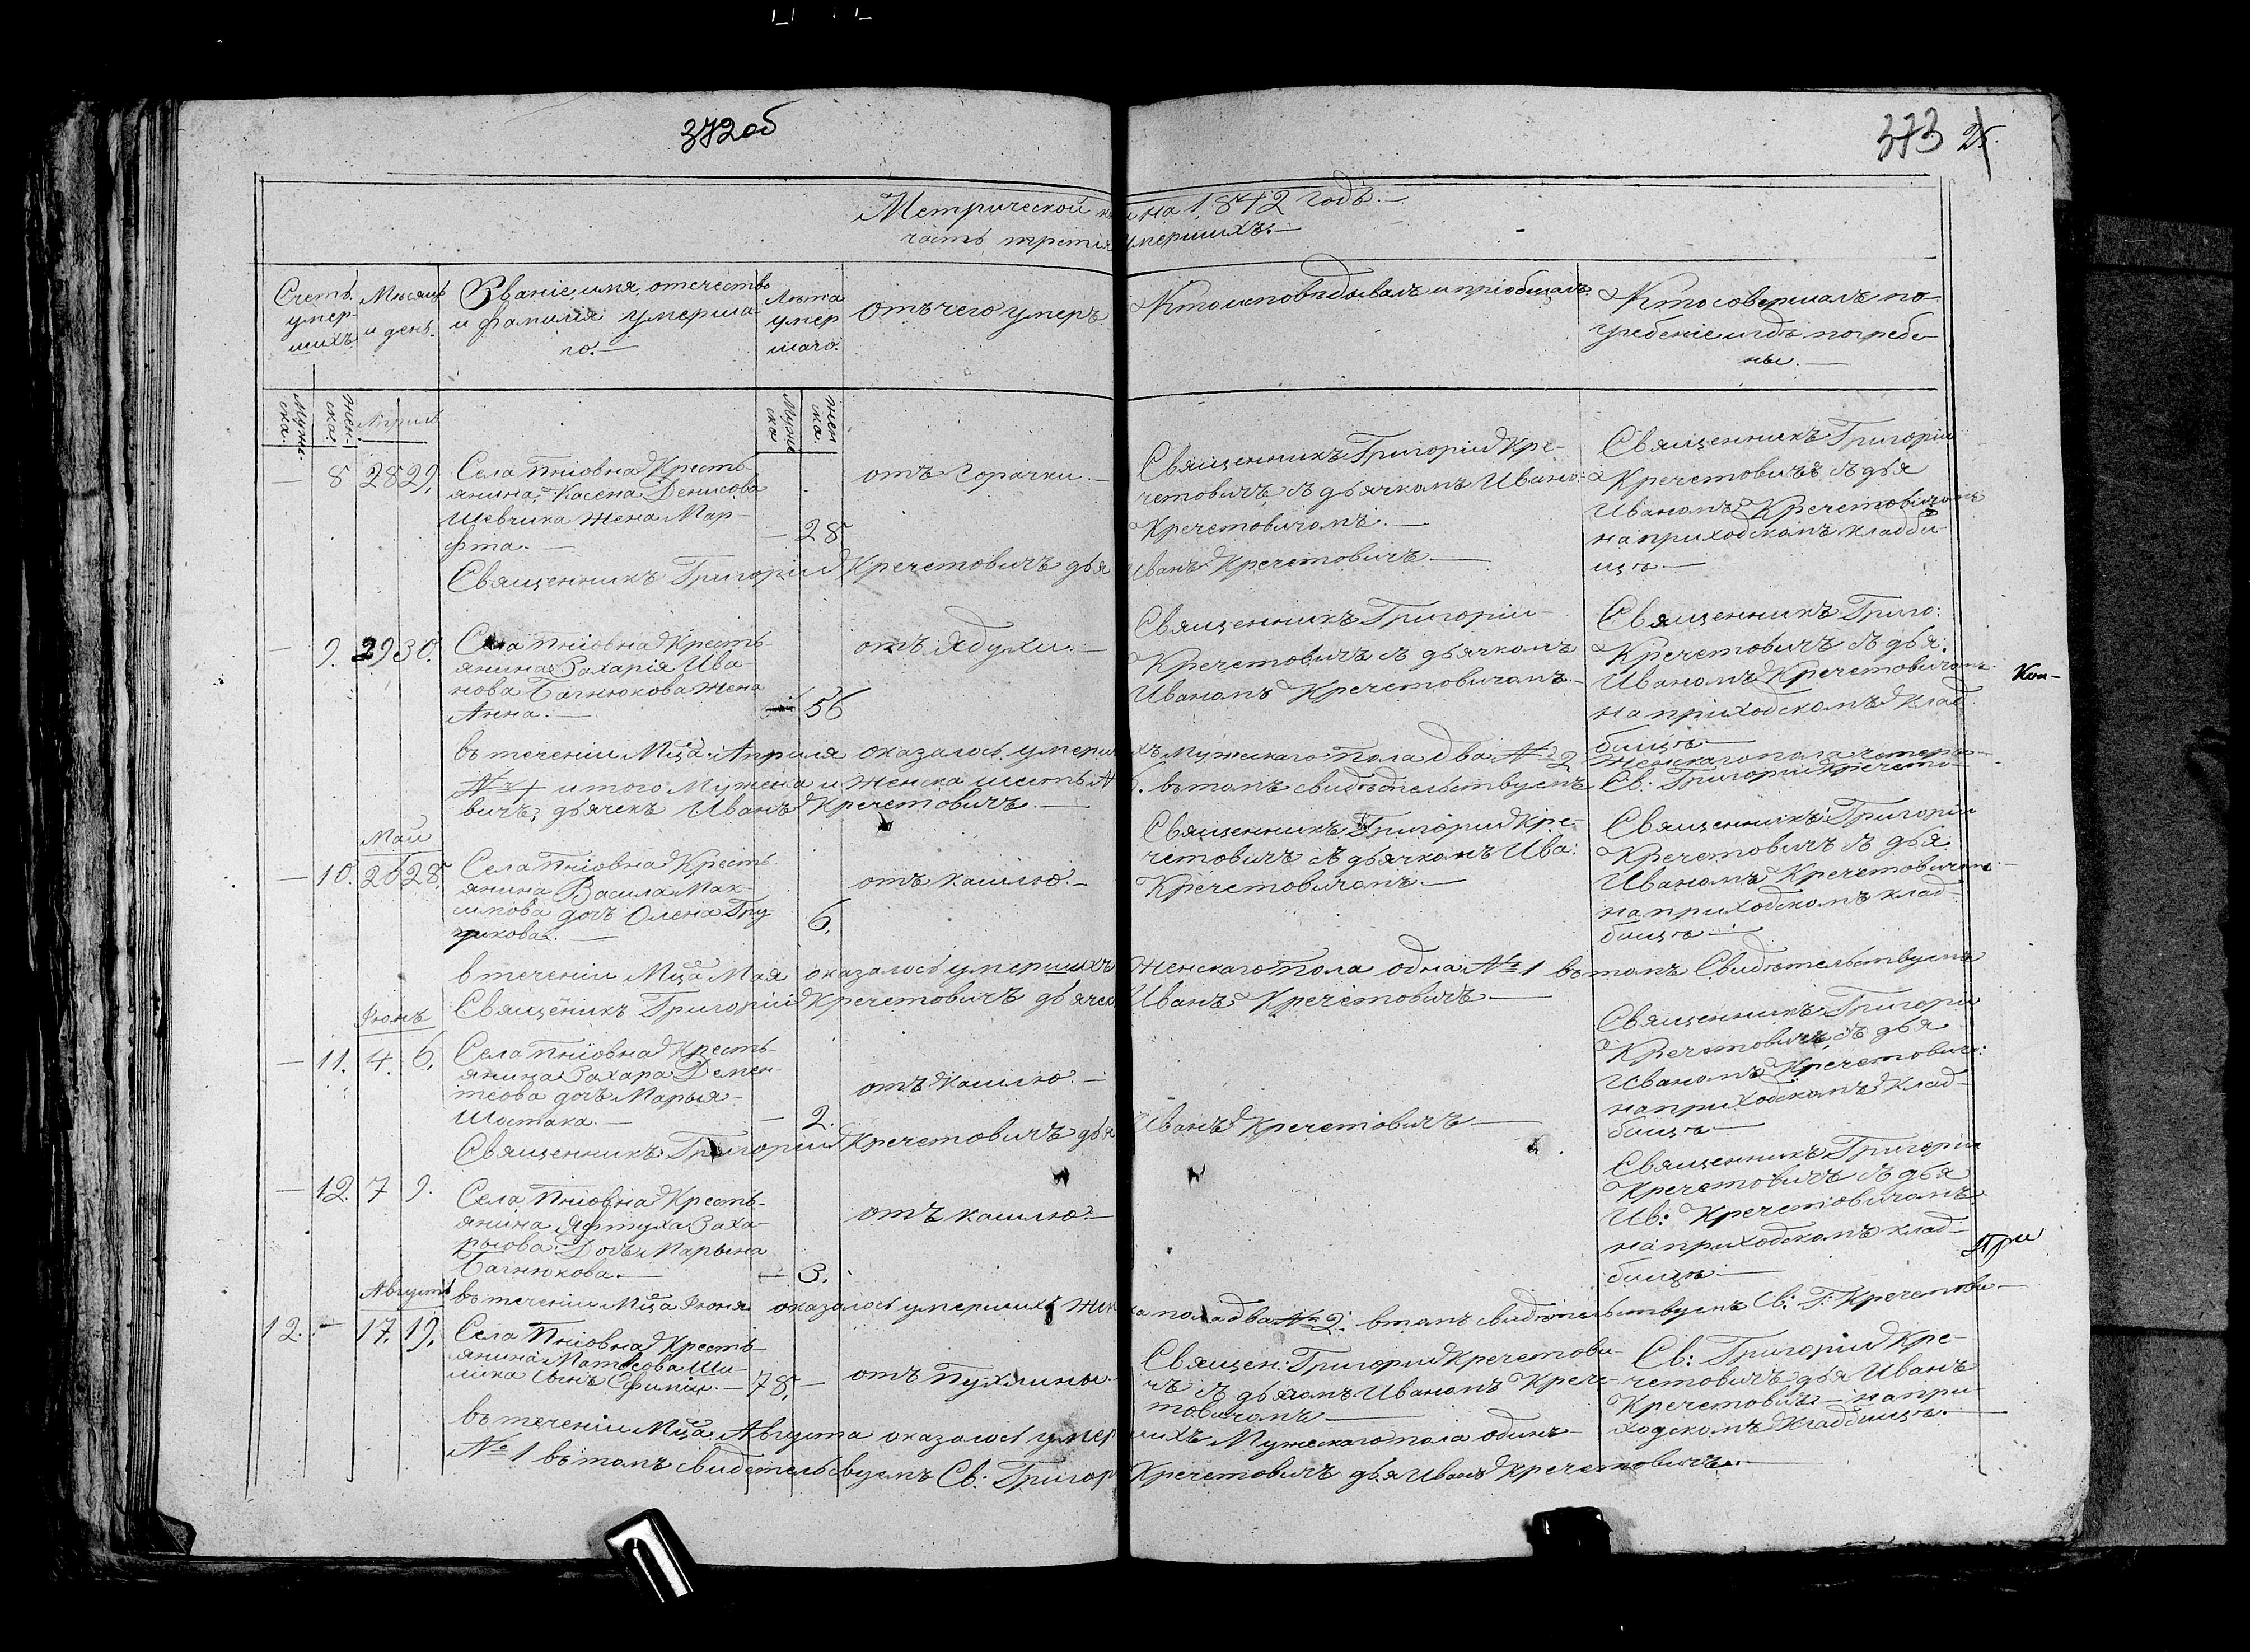 372об
373 25.
Метрической на 1842 годъ.—
часть третія умершихъ.—
Счетъ умер-
шихъ.
Мѣсяцъ
и день.
Званіе, имя, отечество
и фамилія умерша-
го.—
Лѣта
умер
шаго.
Отъ чего умеръ.
Кто исповѣдывалъ и пріобщалъ.
Кто совершалъ по-
гребеніе и гдѣ погребе-
ны.—
Мужес-
ка.
Жен-
ска.
Апрѣль
Мужес
ка
жен
ска.
— 8 28 29.
Села Пніовна Кресть-
янина Касена Денисова
Шевчика жена Мар-
фта.—
— 28
отъ Горачки.—
Священникъ Григорій Кре-
четовичъ съ дьячкомъ Ивано:
Кречетовичомъ.—
Священникъ Григорій
Кречетовичъ съ дья
Иваномъ Кречетовичомъ
на приходскомъ кладби-
щѣ—
Священникъ Григорій Кречетовичъ дья Иванъ Кречетовичъ—
— 9. 29 30.
Села Пніовна Кресть-
янина Захарія Ива
нова Багнюкова жена
Анна.—
56
отъ Ядухи.—
Священникъ Григорій
Кречетовичъ съ дьячкомъ
Иваномъ Кречетовичомъ.—
Священникъ Григо:
Кречетовичъ съ дья:
Иваномъ Кречетовичомъ
на приходскомъ клад
бищѣ—
Кон-
въ теченіи Мца Апреля оказалось умершихъ Мужескаго пола два № 2 женскаго пола четыре
№ 4 итого Мужеска и женска шесть № 6. въ томъ свидѣтельствуемъ Св. Григорій Кречето-
вичъ, дьячекъ Иванъ Кречетовичъ.—
Май
— 10. 26 28.
Села Пніовна Кресть-
янина Васила Мак-
симова дочъ Олена Гру
щикова.—
6.
отъ кашлю.—
Священникъ Григорій Кре-
четовичъ съ дьячкомъ Ива:
Кречетовичомъ.—
Священникъ Григорій
Кречетовичъ съ дья
Иваномъ Кречетовичомъ
на приходскомъ клад-
бищѣ—
в теченіи Мца Мая оказалось умершихъ Женскаго пола одна № 1 въ томъ Свидѣтельствуемъ
Священикъ Григорій Кречетовичъ дьячек Иванъ Кречетовичъ—
Іюнь
— 11. 4. 6.
Села Пніовна Кресть-
янина Захара Демен-
теова дочъ Марья
Шостака.—
— 2.
отъ Кашлю.—
Священникъ Григорій
Кречетовичъ, съ дья
Иваномъ Кречетович:
на приходскомъ клад-
бищѣ—
Священникъ Григорій Кречетовичъ дья Иванъ Кречетовичъ—
— 12. 7 9.
Села Пніовна Кресть-
янина Яфтуха Заха-
рьова Дочъ Марьяна
Багнюкова.—
— 3.
отъ кашлю.—
Священникъ Григорій
Кречетовичъ съ дья
Ив: Кречетовичомъ
на приходскомъ клад-
бищѣ—
При
въ теченіи Мца Іюня оказалось умершихъ женска пола два № 2: в томъ свидѣтельствуемъ Св: Г: Кречетови—
Августъ
12. — 17. 19.
Села Пніовна Кресть-
янина Матвеова Ши-
лика сынъ —
78. —
отъ Пухлины.—
Священ: Григорій Кречетови-
чъ съ дьякомъ Иваномъ Крече-
товичомъ—
Св: Григорій Кре-
четовичъ дья Иванъ
Кречетовичъ — на при-
ходскомъ кладбищѣ.—
въ теченіи Мца Августа оказалось умершихъ Мужескаго пола одинъ—
№ 1 въ томъ свидетельсвуемъ Св: Григор Кречетовичъ дья Иванъ Кречетовичъ.—